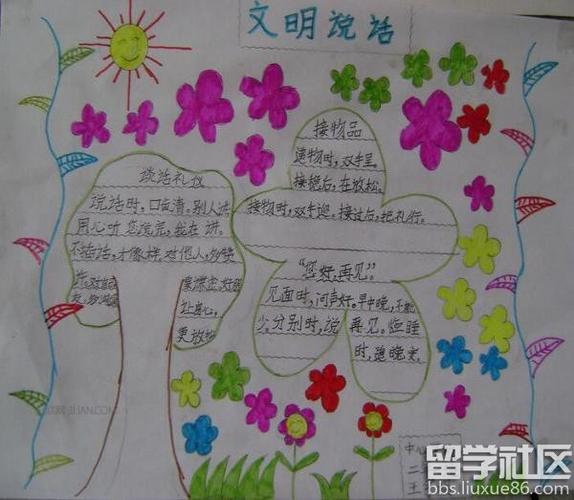 文明说话
谈话礼仪
说话时,口齿清。别人讲,
用心听。您说完,我在讲。
不插话,才像样。对他人,多赞
接物品
递物时,双手呈。
接稳后,在放松。
接物时,双手迎。接过后,把礼行。
“您好,再见”。
见面时,问声好。早中晚,不能
少。分别时,说再见。临睡
时,道晚安。
中
二
王
留学社区
bbs.liuxue86.com